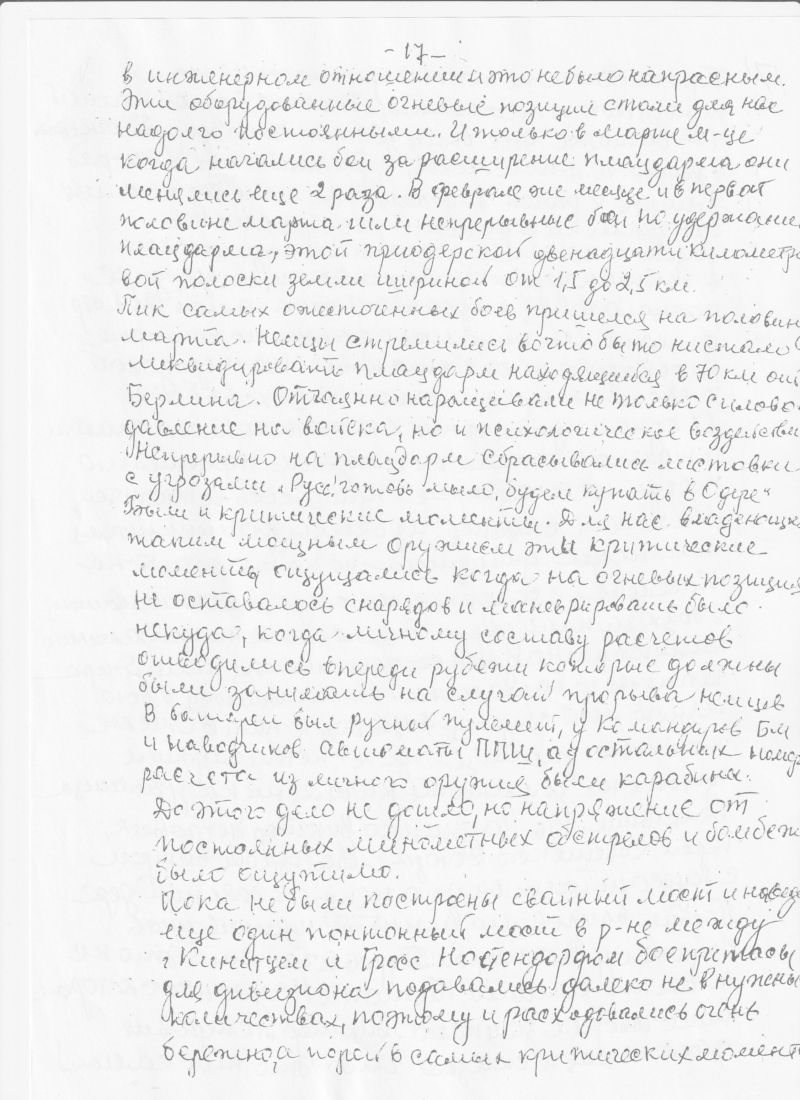 - 17 -
в инженерном отношении и это небыло напрасным.
Эти оборудованные огневые позиции стали для нас
надолго постоянными. И только в марте м-це
когда начались бои за расширение плацдарма они
менялись еще 2 раза. В феврале же месяце и в первой
половине марта шли непрерывные бои по удержанию
плацдарма, этой приодерской двенадцати километро
вой полоски земли шириной от 1,5 до 2,5 км.
Пик самых ожесточенных боев пришелся на половин
марта. Немцы стремились вочтобыто нистало
ликвидировать плацдарм находящийся в 70 км от
Берлина. Отчаянно наращивали не только силово
давление на войска, но и психологическое воздействи
Непрерывно на плацдарм сбрасывались листовки
с угрозами "Русс готовь мыло, будем купать в Одере"
Были и критические моменты. Для нас владеющих
таким мощным оружием эти критические
моменты ощущались когда на огневых позиция
не оставалось снарядов и маневрировать было
некуда, когда личному составу расчетов
отводились впереди рубежи которые должны
были занимать на случай прорыва немцев
В батареи был ручной пулемет, у командиров БМ
и наводчиков автоматы ППШ, а у остальных номер
расчета из личного оружия были карабины.
До этого дело не дошло, но напряжение от
постоянных минометных обстрелов и бомбеж
было ощутимо.
Пока не были построены свайный мост и наведе
еще один понтонный мост в р-не между
г Кинитцем и Гросс Нойендорфом боеприпасы
для дивизиона подавались далеко не в нужны
количествах, поэтому и расходовались очень
бережно, а порой в самых критических момент